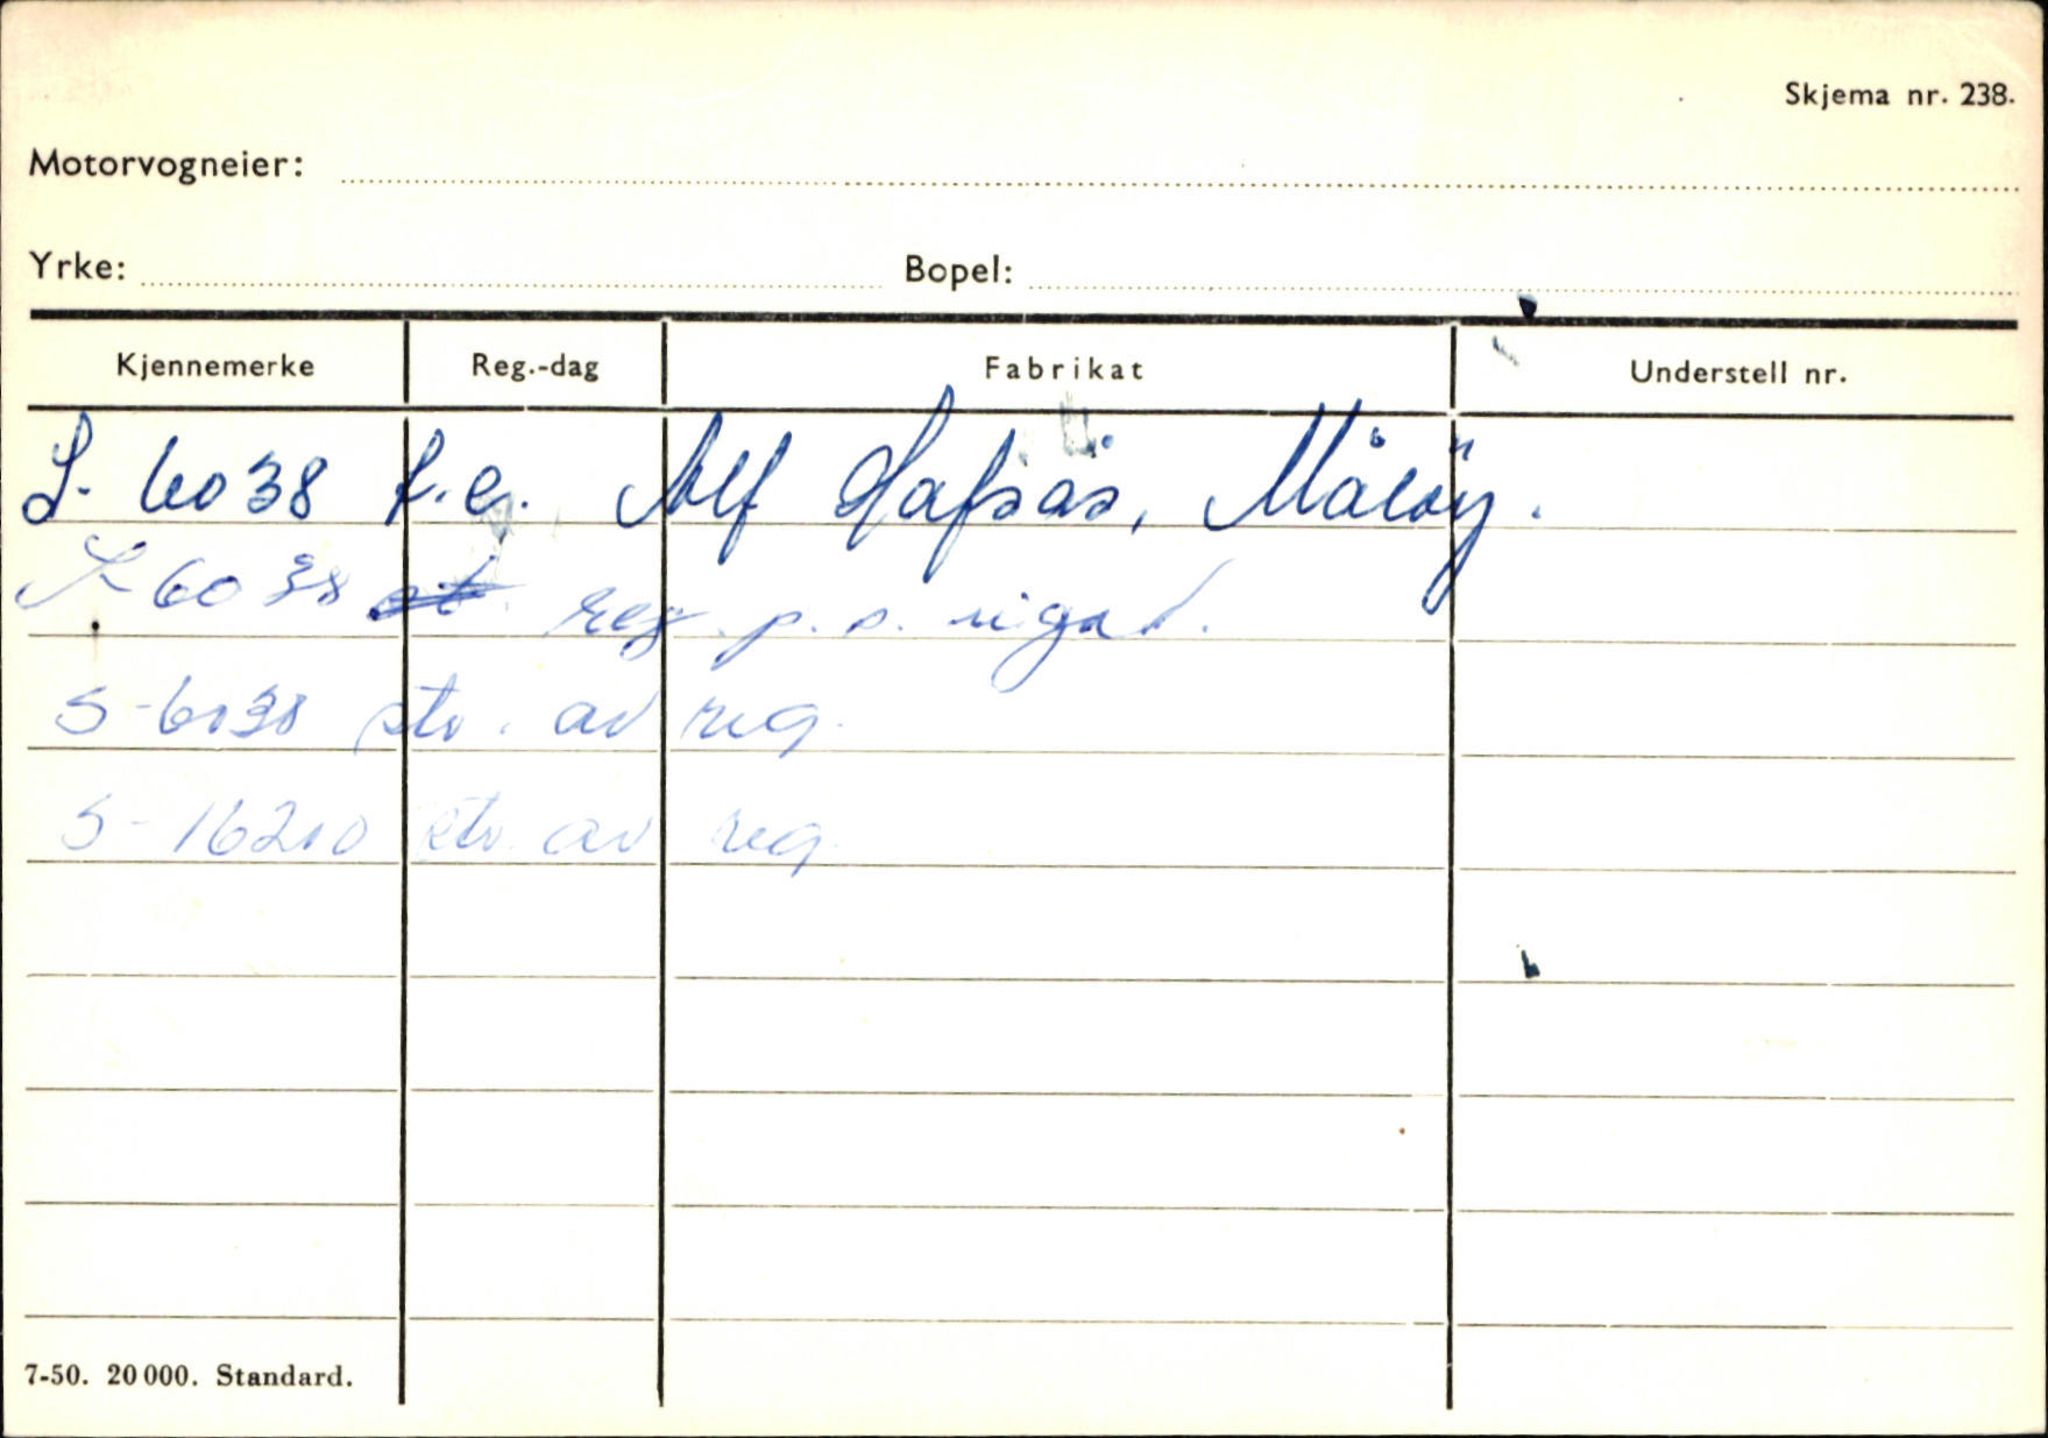 Skjema nr. 238.
Motorvogneier:
Yrke: Bopel:
Kjennemerke Reg.-dag Fabrikat Understell nr.
S- 6038 f.e. Alf Hafsås, Måløy.
S 6038 reg. p.s. rigad.
S-6038 stv. av reg.
S-16210 stv. av reg.
7-50. 20 000. Standard.